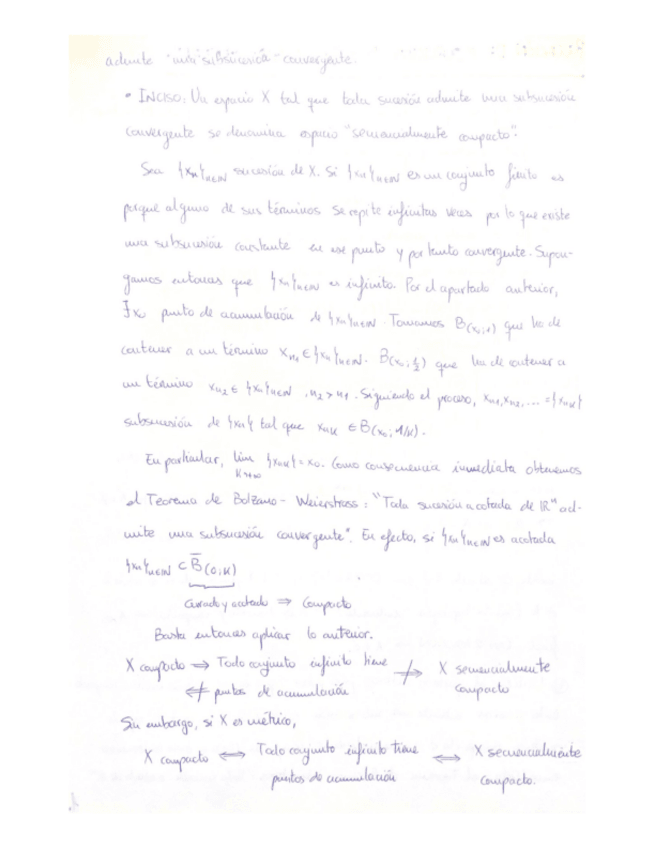 admite una subsucesión convergente.
• INCISO: Un espacio X tal que toda sucesión admite una subsucesión
convergente se denomina espacio "secuencialmente compacto".
Sea {xₙ}ₙ∈ℕ sucesión de X. Si {xₙ}ₙ∈ℕ es un conjunto finito es
porque alguno de sus términos se repite infinitas veces por lo que existe
una subsucesión constante en ese punto y por tanto convergente. Supon-
gamos entonces que {xₙ}ₙ∈ℕ es infinito. Por el apartado anterior,
∃x₀ punto de acumulación de {xₙ}ₙ∈ℕ. Tomamos B(x₀;1) que ha de
contener a un término xₙ₁ ∈ {xₙ}ₙ∈ℕ. B(x₀;½) que ha de contener a
un término xₙ₂ ∈ {xₙ}ₙ∈ℕ, n₂ > n₁. Siguiendo el proceso, xₙ₁, xₙ₂, ... = {xₙₖ}
subsucesión de {xₙ} tal que xₙₖ ∈ B(x₀; 1/k).
En particular, lim {xₙₖ} = x₀. Como consecuencia inmediata obtenemos
k→∞
el Teorema de Bolzano - Weierstrass: "Toda sucesión acotada de ℝⁿ ad-
mite una subsucesión convergente". En efecto, si {xₙ}ₙ∈ℕ es acotada
{xₙ}ₙ∈ℕ ⊂ B̅(0;K)
Cerrado y acotado ⇒ Compacto
Basta entonces aplicar lo anterior.
X compacto ⇒ Todo conjunto infinito tiene ⇏ X secuencialmente
⇍ puntos de acumulación compacto
Sin embargo, si X es métrico,
X compacto ⇔ Todo conjunto infinito tiene ⇔ X secuencialmente
puntos de acumulación compacto.